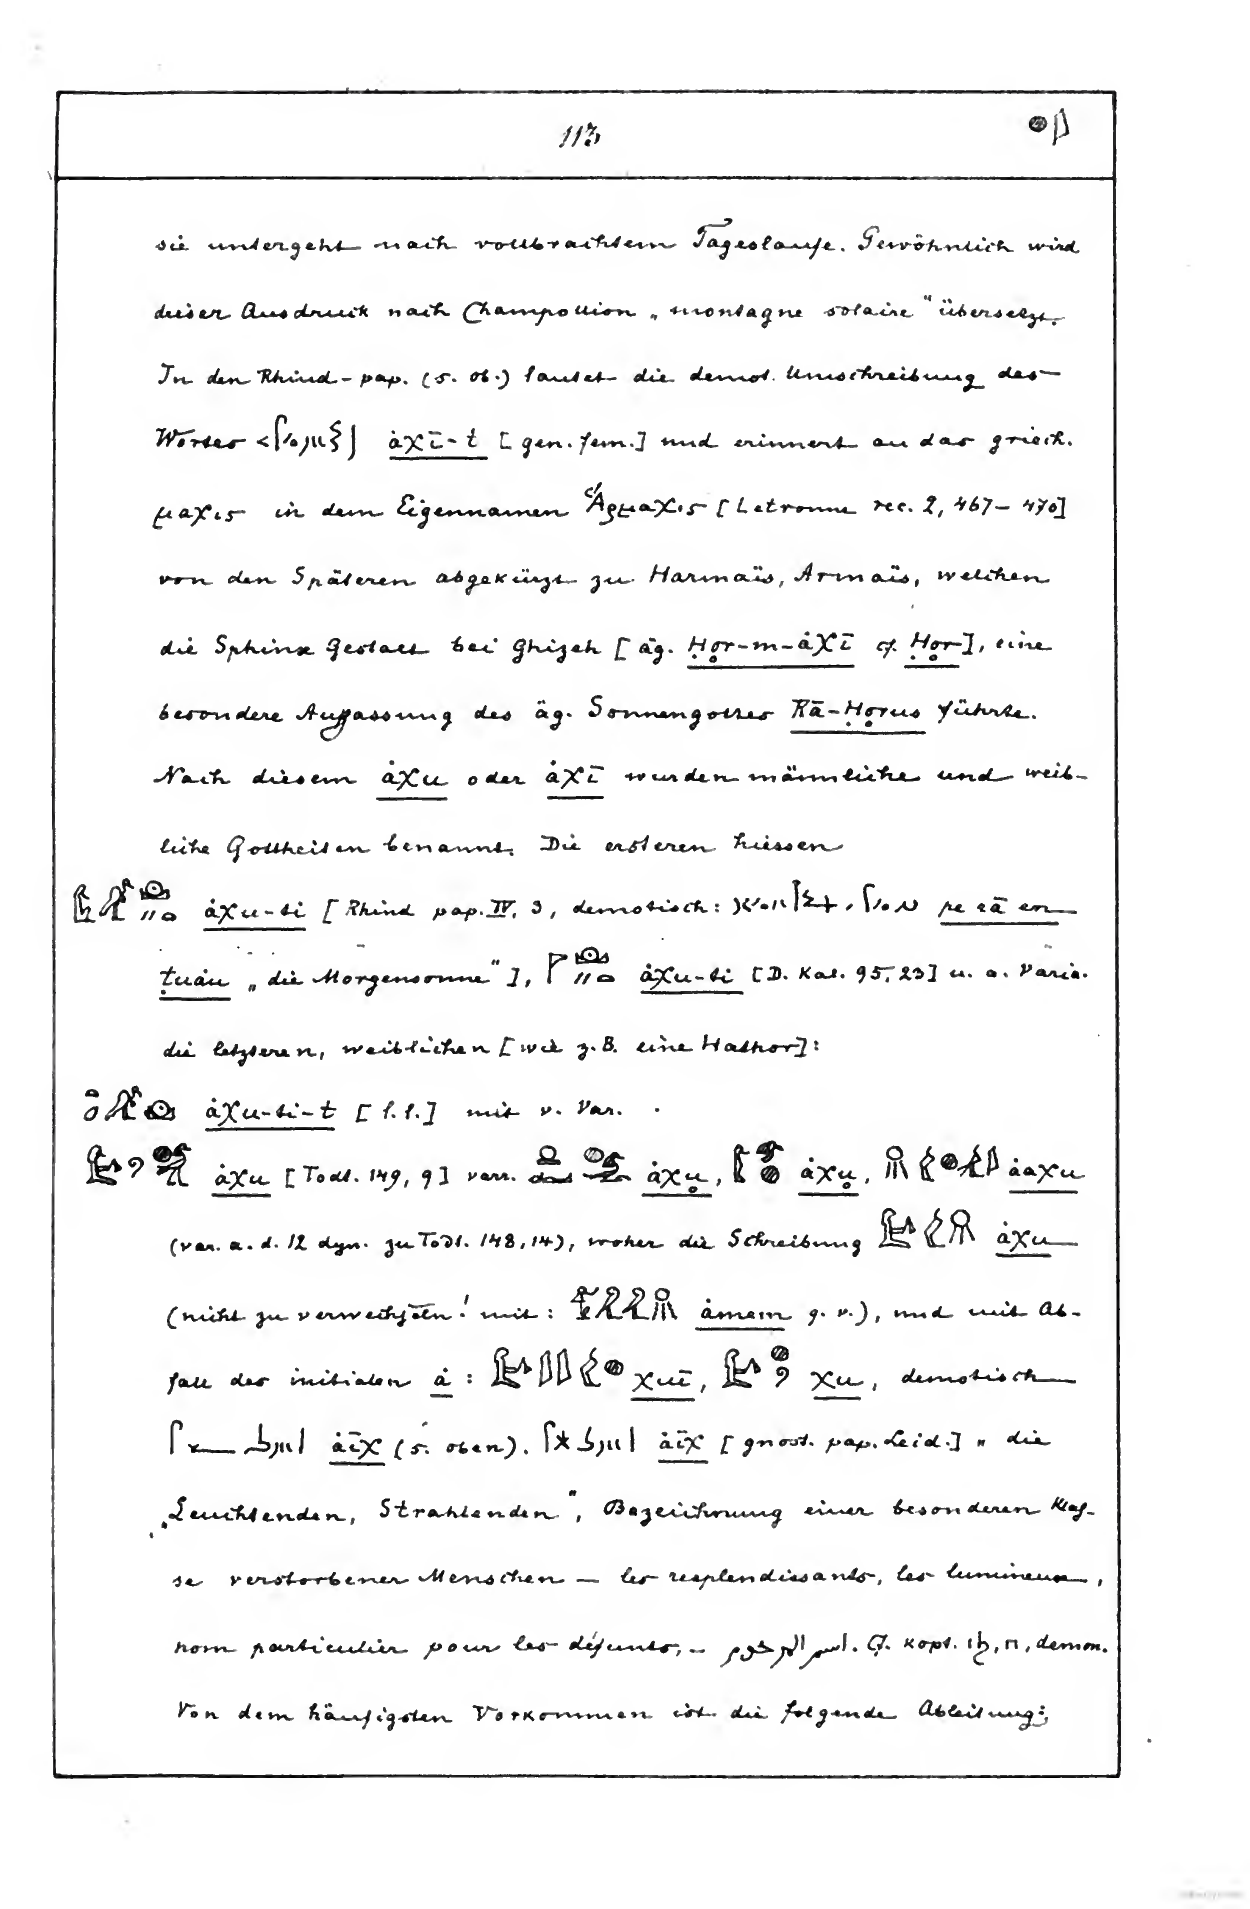 113
sie untergeht nach vollbrachtem Tageslaufe. Gewöhnlich wird
dieser Ausdruck nach Champollion „montagne solaire“ übersetzt.
In den Rhind-pap. (s. ob.) lautet die demot. Umschreibung des
Wortes ȧχī-t [gen. fem.] und erinnert an das griech.
μαχις in dem Eigennamen Ἁρμαχις [Letronne rec. 2, 467-470]
von den Späteren abgekürzt zu Harmaïs, Armaïs, welchen
die Sphinx Gestalt bei Ghizeh [äg. Ḥor-m-ȧχī cf. Ḥor], eine
besondere Auffassung des äg. Sonnengottes Rā-Ḥorus führte.
Nach diesem ȧχu oder ȧχī wurden männliche und weib-
liche Gottheiten benannt. Die ersteren hiessen
ȧχu-ti [Rhind pap. IV, 3, demotisch: pe rā en
ṭuȧu „die Morgensonne“], ȧχu-ti [D. Kal. 95,23] u. a. Varia.
die letzteren, weiblichen [wie z.B. eine Hathor]:
ȧχu-ti-t [l.l.] mit v. Var.
ȧχu [Todt. 149, 9] varr. ȧχu̥, ȧχu̥, ȧaχu
(var. a. d. 12 dyn. zu Todt. 148,14), woher die Schreibung ȧχu
(nicht zu verwechseln! mit: ȧmem q. v.), und mit Ab-
fall des initialen ȧ: χuī, χu, demotisch
ȧīχ (s. oben), ȧīχ [gnost. pap. Leid.] „die
„Leuchtenden, Strahlenden“, Bezeichnung einer besonderen Klas-
se verstorbener Menschen — les resplendissants, les lumineux,
nom particulier pour les défunts, — اسم المرحوم. Cf. kopt. ⲓϧ, ⲡ, demon.
Von dem häufigsten Vorkommen ist die folgende Ableitung: